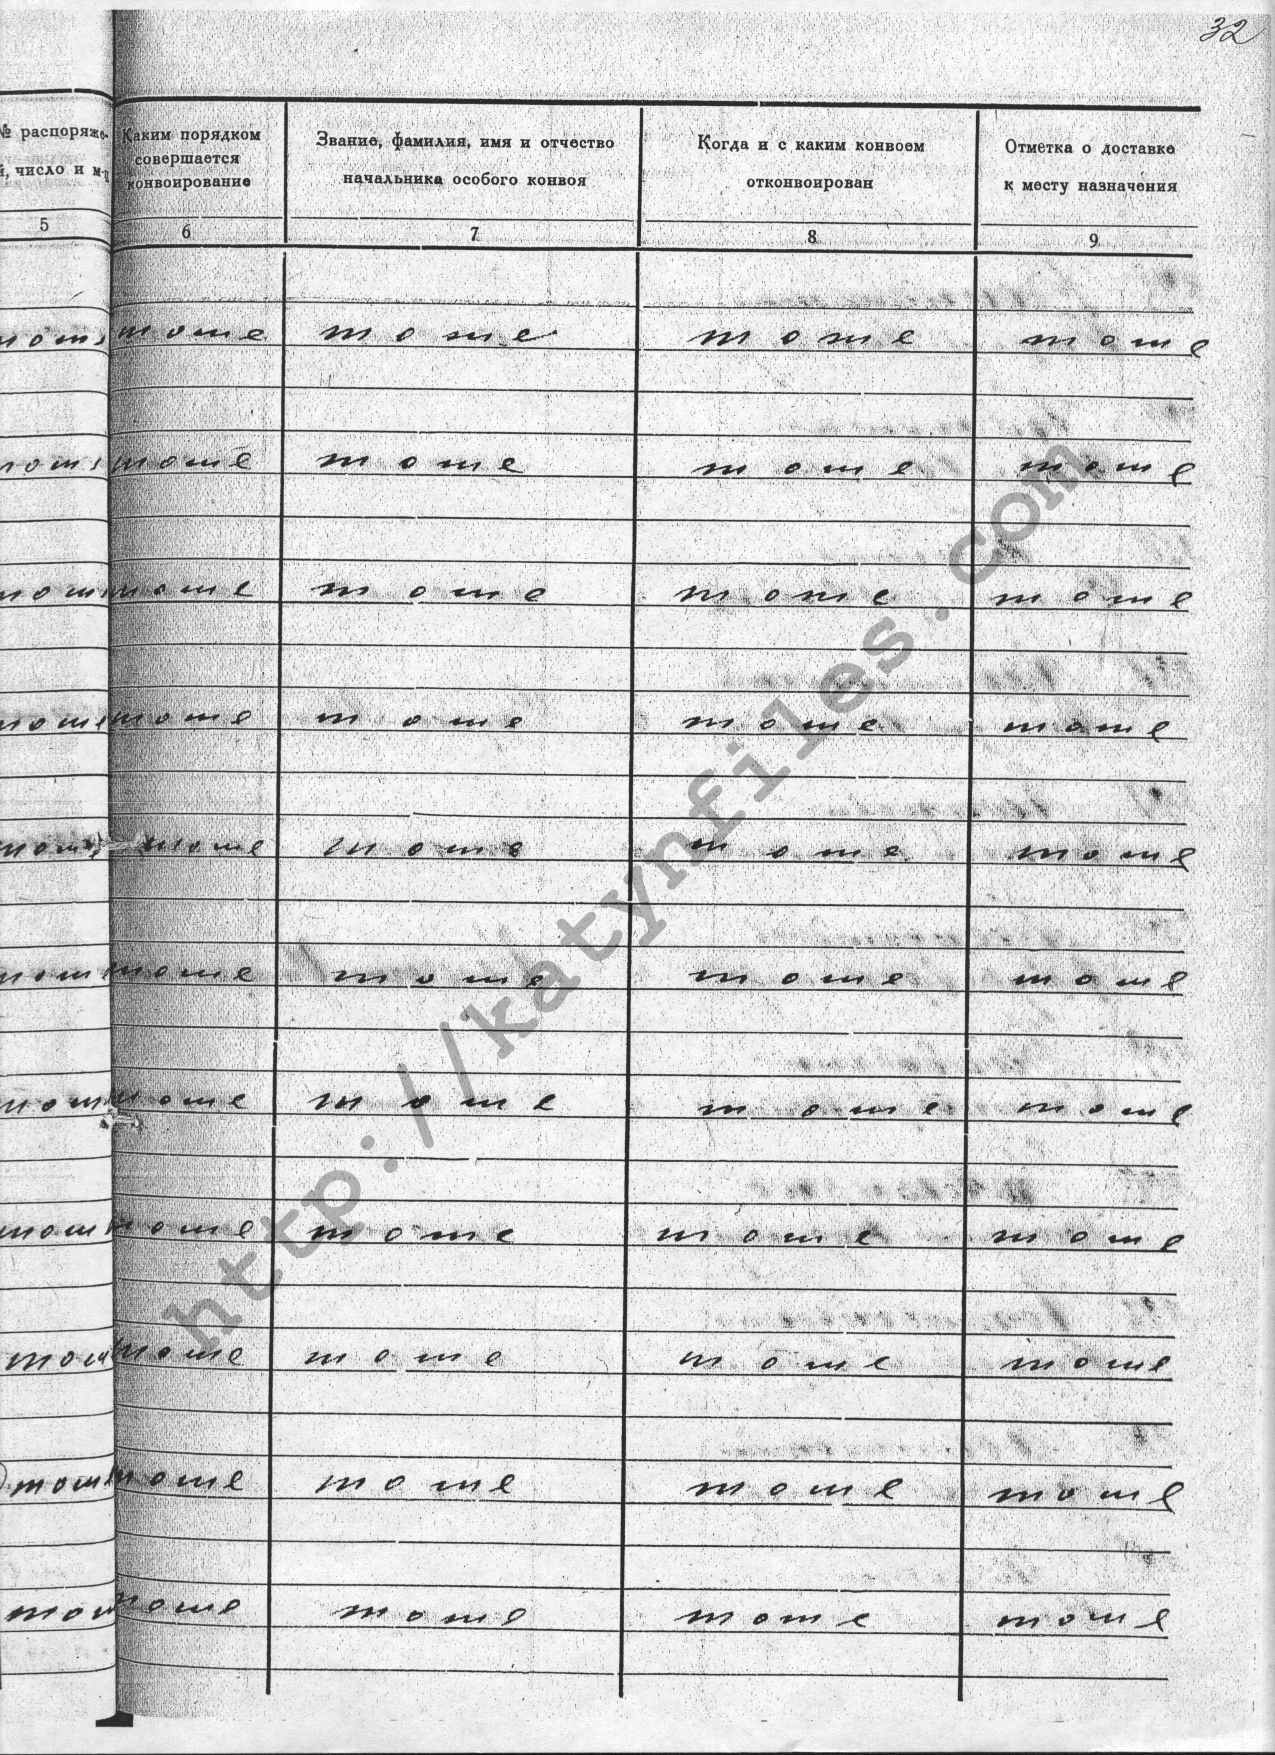 32
№ распоряже-
Каким порядком
Звание, фамилия, имя и отчество
Когда и с каким конвоем
Отметка о доставке
совершается
й, число и м-ц
конвоирование
начальника особого конвоя
отконвоирован
к месту назначения
5 6 7 8 9
тоже тоже тоже тоже
тоже тоже тоже тоже
тоже тоже тоже тоже
тоже тоже тоже тоже
тоже тоже тоже тоже
тоже тоже тоже тоже
тоже тоже тоже тоже
тоже тоже тоже тоже
тоже тоже тоже тоже
тоже тоже тоже тоже
тоже тоже тоже тоже
http://katynfiles.com